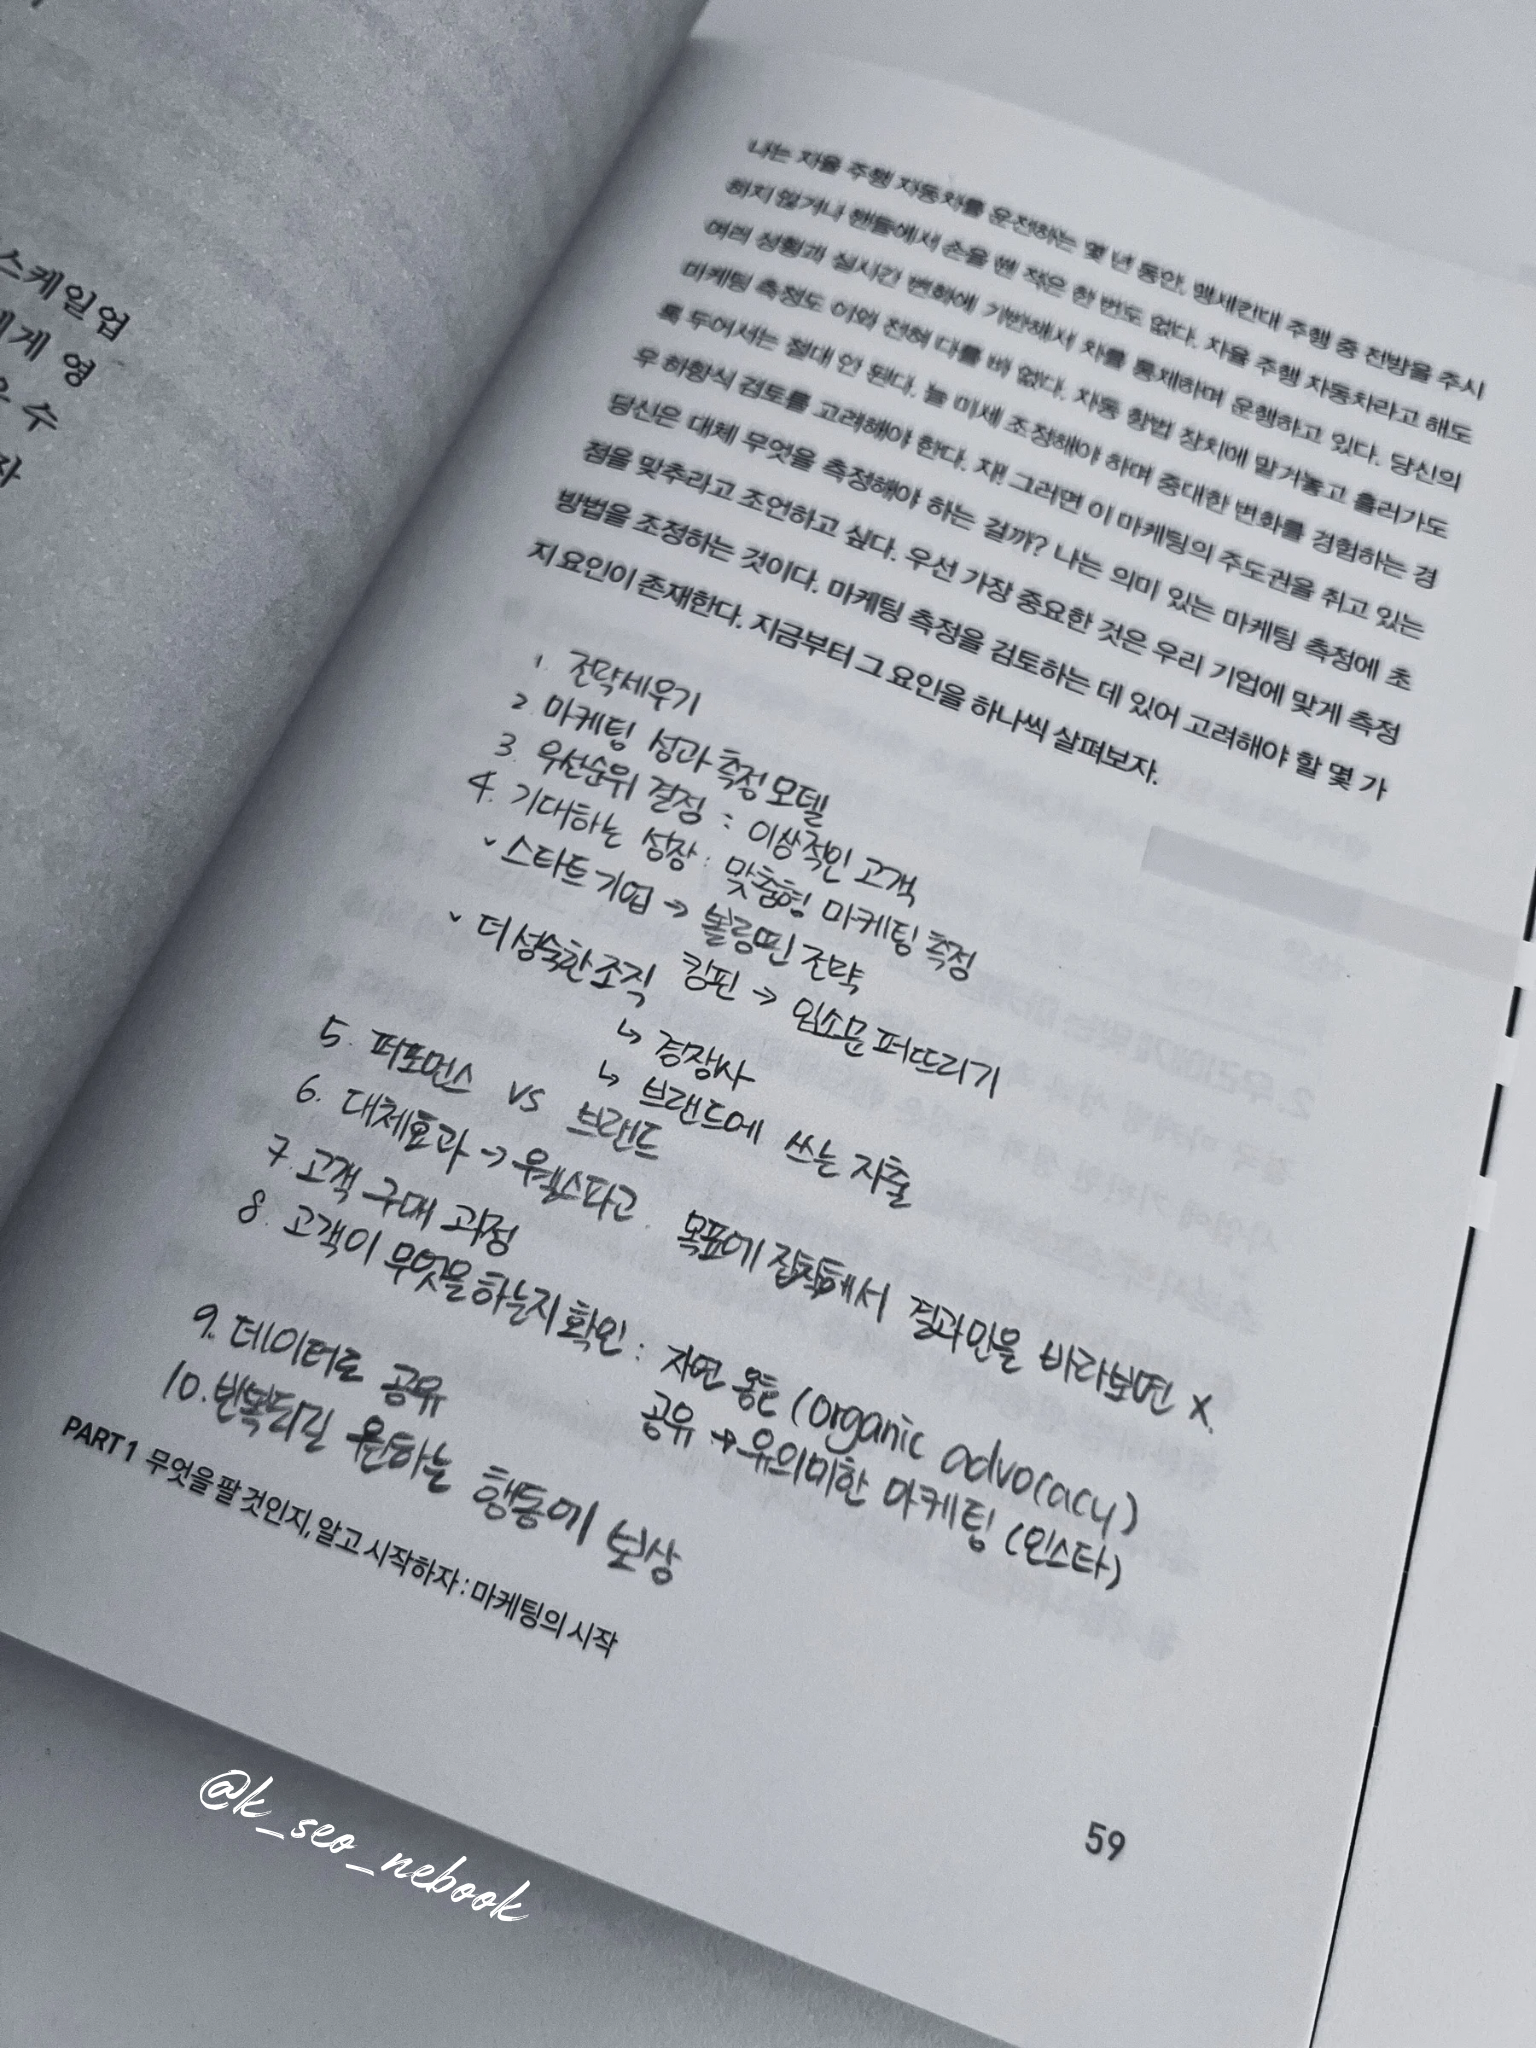 스케일업
에게 영
수
자
나는 자율 주행 자동차를 운전하는 몇 년 동안, 맹세컨대 주행 중 전방을 주시
하지 않거나 핸들에서 손을 뗀 적은 한 번도 없다. 자율 주행 자동차라고 해도
여러 상황과 실시간 변화에 기반해서 차를 통제하며 운행하고 있다. 당신의
마케팅 측정도 이와 전혀 다를 바 없다. 자동 항법 장치에 맡겨놓고 흘러가도
록 두어서는 절대 안 된다. 늘 미세 조정해야 하며 중대한 변화를 경험하는 경
우 하향식 검토를 고려해야 한다. 자! 그러면 이 마케팅의 주도권을 쥐고 있는
당신은 대체 무엇을 측정해야 하는 걸까? 나는 의미 있는 마케팅 측정에 초
점을 맞추라고 조언하고 싶다. 우선 가장 중요한 것은 우리 기업에 맞게 측정
방법을 조정하는 것이다. 마케팅 측정을 검토하는 데 있어 고려해야 할 몇 가
지 요인이 존재한다. 지금부터 그 요인을 하나씩 살펴보자.
1. 전략세우기
2. 마케팅 성과 측정 모델
3. 우선순위 결정 : 이상적인 고객
4. 기대하는 성장 : 맞춤형 마케팅 측정
스타트기업 → 볼링핀 전략
킹핀 → 입소문 퍼뜨리기
더 성숙한 조직
↳ 경쟁사
↳ 브랜드에 쓰는 지출
5. 퍼포먼스 vs 브랜드
6. 대체효과 → 웩스파고. 목표에 집착해서 결과만을 바라보면 X.
7. 고객 구매 과정
8. 고객이 무엇을 하는지 확인 : 자연 옹호 (organic advocacy)
공유 → 유의미한 마케팅 (인스타)
9. 데이터로 공유
10. 반복되길 원하는 행동에 보상
PART 1 무엇을 팔 것인지, 알고 시작하자 : 마케팅의 시작
59
@k_seo_nebook